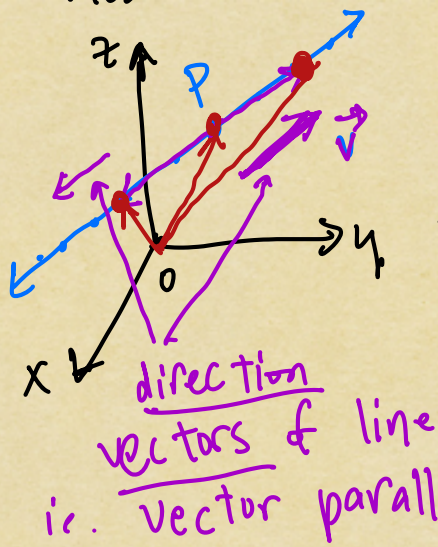 z
P
v
y
O
x
direction
vectors of line
ie. vector parall